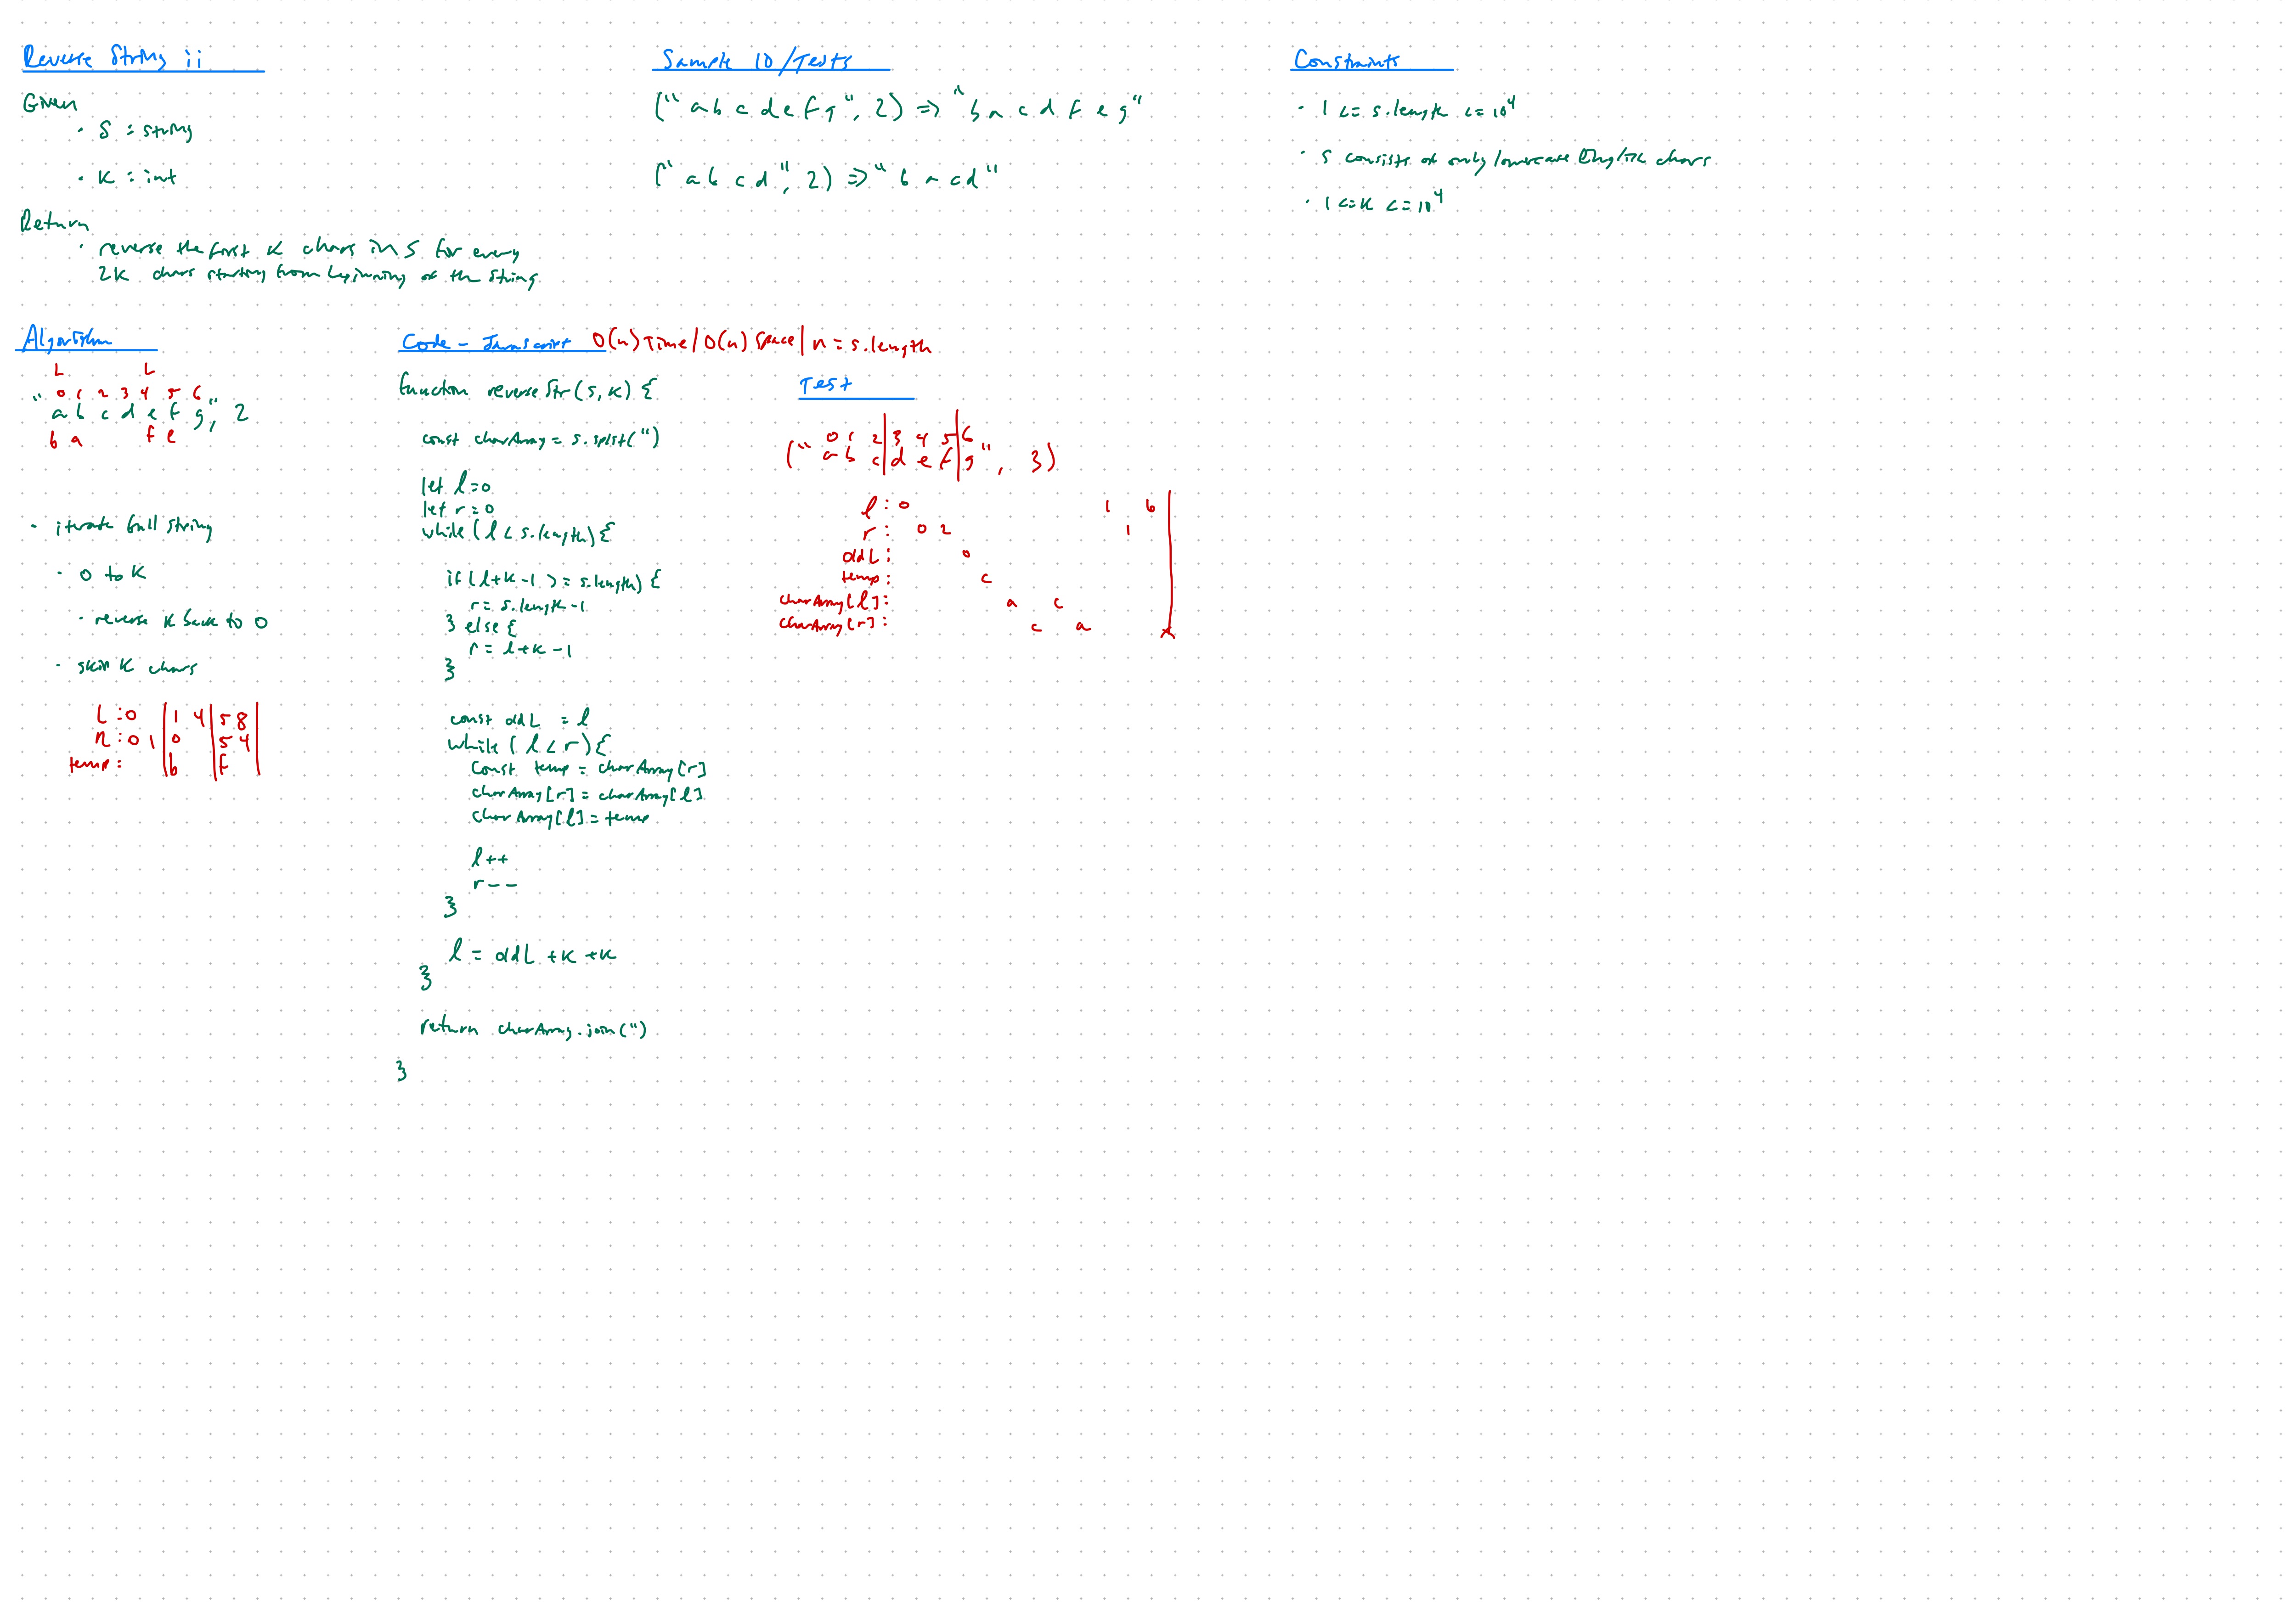 Reverse String ii
Given
· S : string
· K : int
Return
· reverse the first K chars in S for every
2K chars starting from beginning of the string
Sample IO/Tests
("abcdefg", 2) => "bacdfeg"
("abcd", 2) => "bacd"
Constraints
· 1 <= s.length <= 10^4
· S consists of only lowercase English chars
· 1 <= K <= 10^4
Algorithm
L L
0 1 2 3 4 5 6
"a b c d e f g", 2
b a f e
· iterate full string
· 0 to K
· reverse K back to 0
· skip K chars
L : 0 | 1 4 | 5 8 |
R : 0 1 | 0 | 5 4 |
temp : | b | f |
Code - Javascript O(n) Time | O(n) Space | n = s.length
function reverseStr(s, k) {
const charArray = s.split('')
let l = 0
let r = 0
while (l < s.length) {
if (l+k-1 >= s.length) {
r = s.length - 1
} else {
r = l + k - 1
}
const oldL = l
while (l < r) {
const temp = charArray[r]
charArray[r] = charArray[l]
charArray[l] = temp
l++
r--
}
l = oldL + k + k
}
return charArray.join('')
}
Test
0 1 2 | 3 4 5 | 6
("a b c | d e f | g", 3)
l : 0 1 6
r : 0 2 1
oldL : 0
temp : c
charArray[l] : a c
charArray[r] : c a